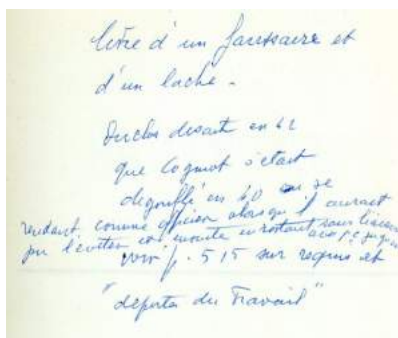 livre d'un faussaire et
d'un lache -
Duclos disait en 42
que Cogniot s'était
dégonflé en 40 en se
rendant, comme officier alors qu'il aurait
pu l'éviter et ensuite en restant sans liaison
avec p.c.
voir p. 515 sur requis et
"déportés du Travail"